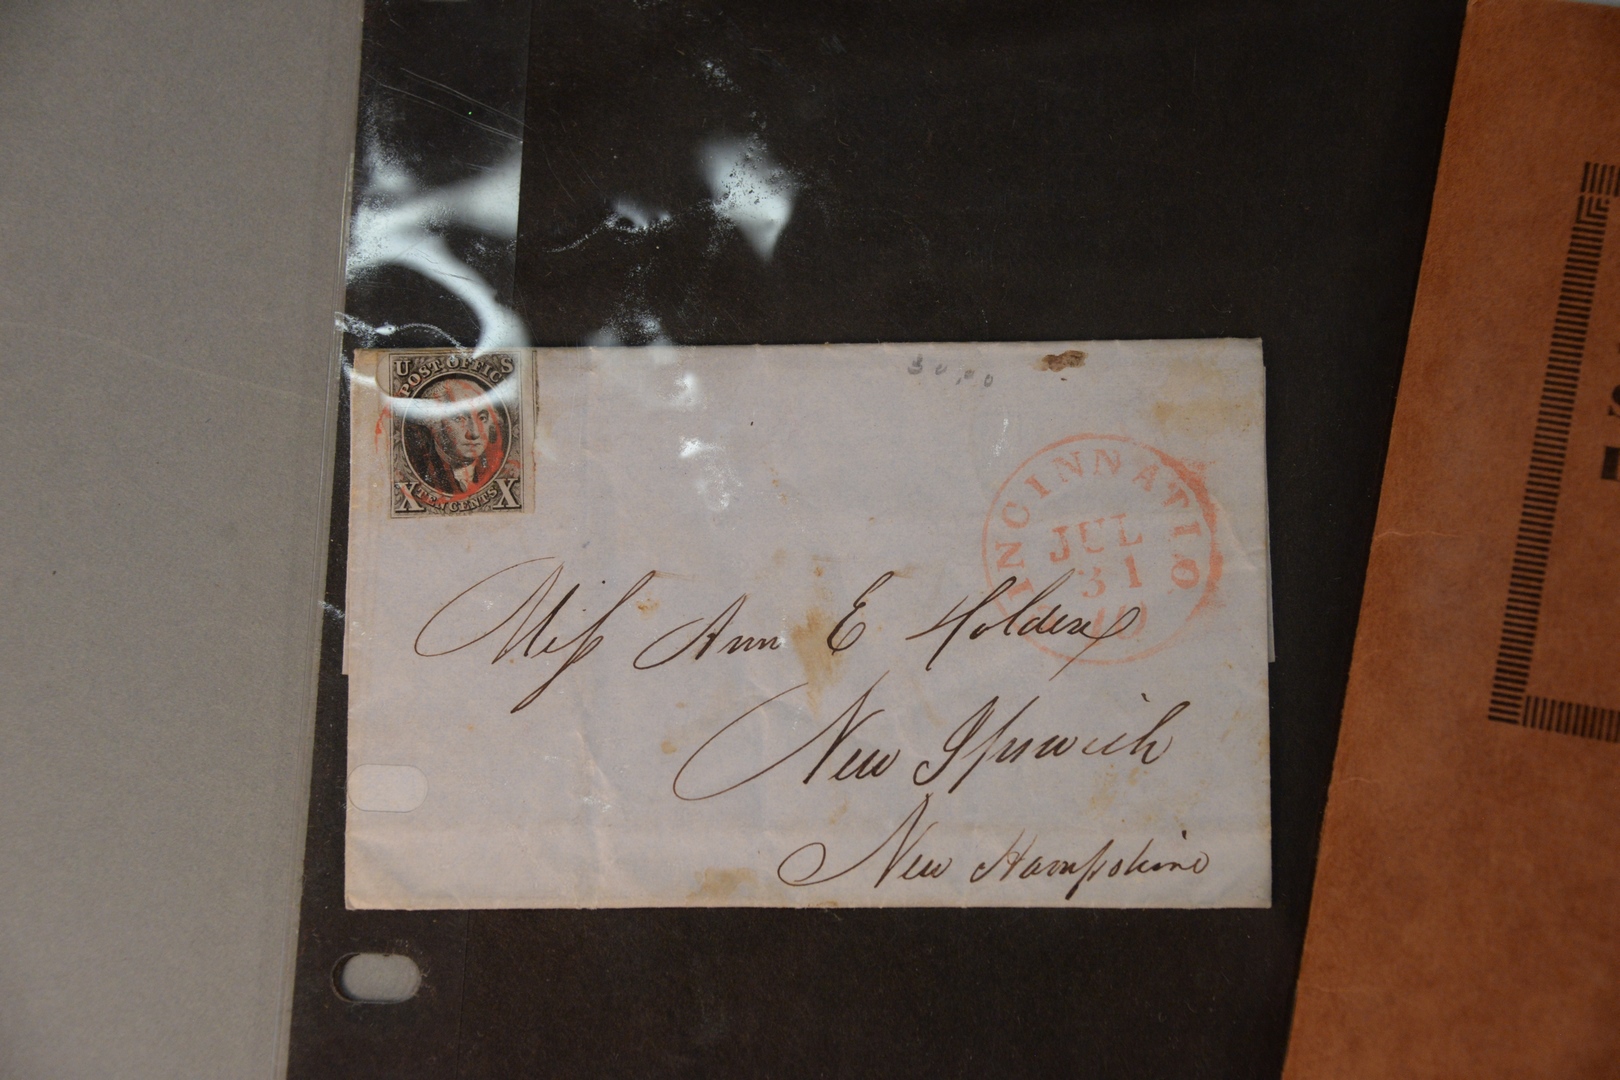 U S
POST OFFICE
X TEN CENTS X
30.00
CINCINNATI O
JUL
31
10
Miss Ann E Holden
New Ipswich
New Hampshire